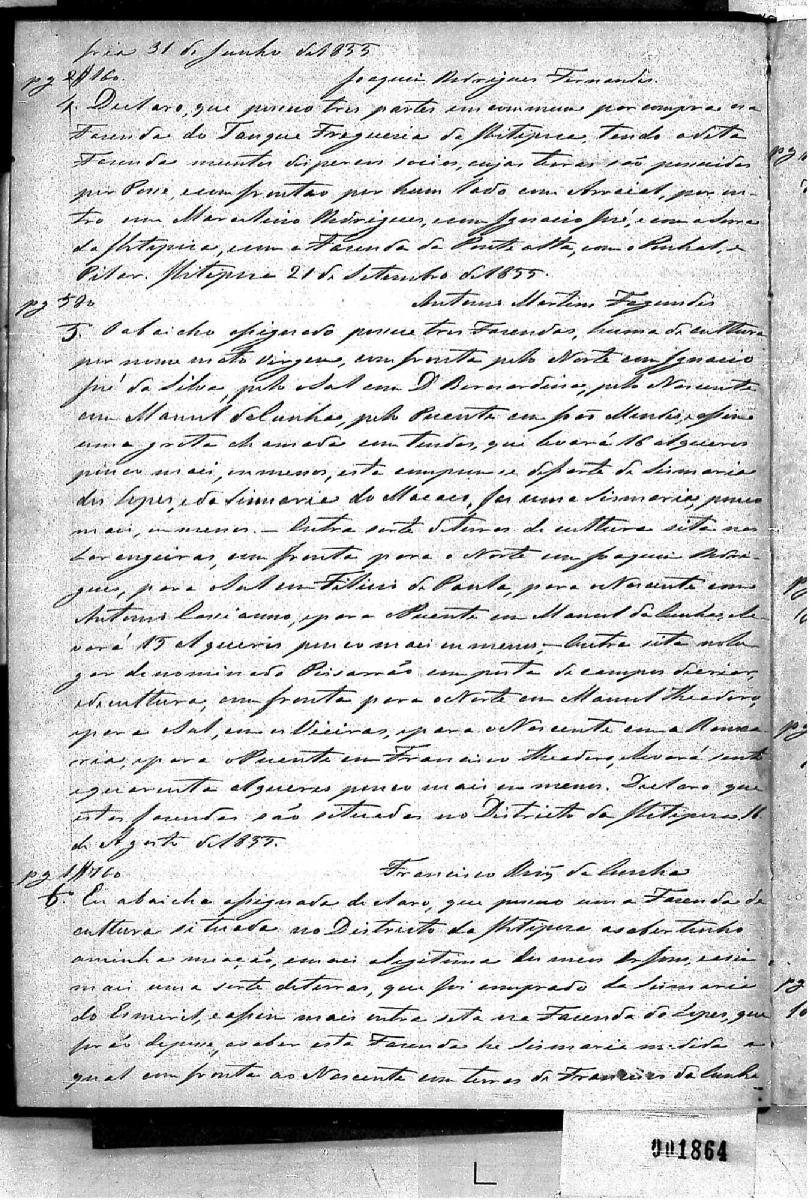 pira 31 de Junho de 1855
pg 2$160. Joaquim Rodrigues Fernandes.
4. Declaro, que possuo tres partes em commum por compra na
Fazenda do Tanque Freguesia da Ibitipoca, tendo a dita
Fazenda muitos dispersos socios, cujas terras são possuidas
por Posse, e com frontão por hum lado com Arraial, por ou-
tro com Marcelino Rodrigues, e com Ignacio José, e com a Serra
da Ibitipoca, e com a Fazenda da Ponte alta, com o Pinhal, e
Pilar. Ibitipoca 21 de Setembro de 1855.
pg 580 Antonio Martins Fagundes
5. O abaicho assignado possue tres Fazendas, huma de cultura
por nome mato virgem, com fronta pelo Norte com Ignacio
José da Silva, pelo Sul com D. Bernardina, pelo Nascente
com Manuel da Cunha, pelo Puente com Mendes, e assim
uma grota chamada contendas, que levará 16 alqueres
pouco mais, ou menos, esta comprou-se da parte da Sismaria
dos Lopes, e da Sismaria do Macaco, foi uma Sismaria, pouco
mais, ou menos. — Outra sorte de terras de cultura sita nas
Larangeiras, com fronta para o Norte com Joaquim Rodri-
gues, para o Sul com Felicio de Paula, para o Nascente com
Antonio Cassianno, e para o Puente com Manuel da Cunha, le-
vará 15 alqueres pouco mais ou menos, — Outra sita no lu-
gar denominado Pissarrão em parte de campos de criar,
e de cultura, com fronta para o Norte com Manuel Theodoro,
e para o Sul, com os Vieiras, e para o Nascente com a
e para o Puente com Francisco Theodoro, levará sento
e quarenta alqueres pouco mais ou menos. Declaro que
estas fazendas são situadas no Districto da Ibitipoca 16
de Agosto de 1855.
pg 1$760 Francisco Roiz da Cunha
6. Eu abaicha assignada declaro, que possuo uma Fazenda de
cultura situada no Districto da Ibitipoca a saber tenho
a minha meação, e mais a legitima dos meus Orfãos, e assim
mais uma sorte de terras, que foi comprado da Sismaria
do Esmeril, e assim mais outra seta na Fazenda do Lopes, que
a saber esta Fazenda he Sismaria medida a
qual com fronta ao Nascente com terras de Francisco da Cunha
001864